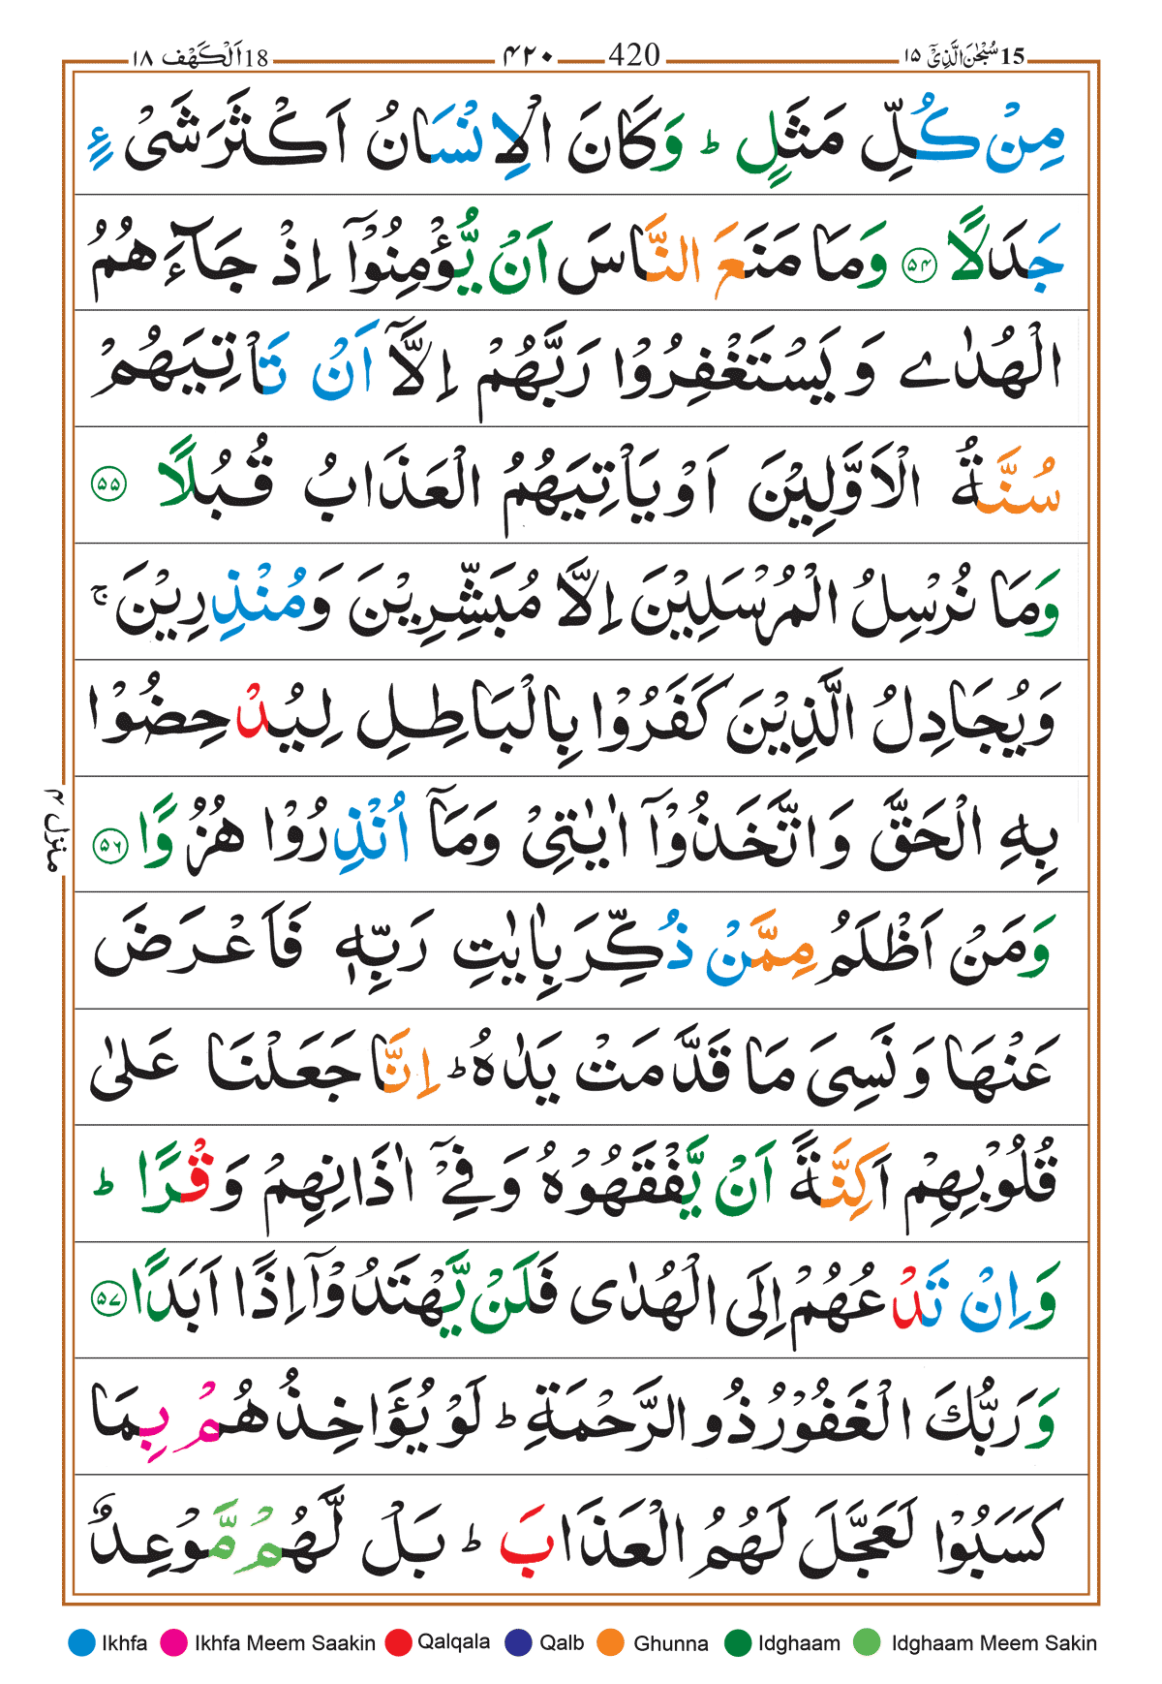 18 اَلْكَهْف ١٨ — ۴۲۰ — 420 — 15 سُبْحٰنَ الَّذِیْۤ ١٥
مِنْ كُلِّ مَثَلٍ ؕ وَكَانَ الْاِنْسَانُ اَكْثَرَ شَیْءٍ
جَدَلًا ۵۴ وَمَا مَنَعَ النَّاسَ اَنْ یُّؤْمِنُوْۤا اِذْ جَآءَهُمُ
الْهُدٰے وَ یَسْتَغْفِرُوْا رَبَّهُمْ اِلَّاۤ اَنْ تَاْتِیَهُمْ
سُنَّةُ الْاَوَّلِیْنَ اَوْ یَاْتِیَهُمُ الْعَذَابُ قُبُلًا ۵۵
وَمَا نُرْسِلُ الْمُرْسَلِیْنَ اِلَّا مُبَشِّرِیْنَ وَمُنْذِرِیْنَ ۚ
وَیُجَادِلُ الَّذِیْنَ كَفَرُوْا بِالْبَاطِلِ لِیُدْحِضُوْا
بِهِ الْحَقَّ وَ اتَّخَذُوْۤا اٰیٰتِیْ وَمَاۤ اُنْذِرُوْا هُزُوًا ۵۶
وَمَنْ اَظْلَمُ مِمَّنْ ذُكِّرَ بِاٰیٰتِ رَبِّهٖ فَاَعْرَضَ
عَنْهَا وَ نَسِیَ مَا قَدَّمَتْ یَدٰهُ ؕ اِنَّا جَعَلْنَا عَلٰی
قُلُوْبِهِمْ اَكِنَّةً اَنْ یَّفْقَهُوْهُ وَ فِیْۤ اٰذَانِهِمْ وَقْرًا ؕ
وَاِنْ تَدْعُهُمْ اِلَی الْهُدٰی فَلَنْ یَّهْتَدُوْۤا اِذًا اَبَدًا ۵۷
وَرَبُّكَ الْغَفُوْرُ ذُو الرَّحْمَةِ ؕ لَوْ یُؤَاخِذُهُمْ بِمَا
كَسَبُوْا لَعَجَّلَ لَهُمُ الْعَذَابَ ؕ بَلْ لَّهُمْ مَّوْعِدٌ
منزل ۴
Ikhfa Ikhfa Meem Saakin Qalqala Qalb Ghunna Idghaam Idghaam Meem Sakin